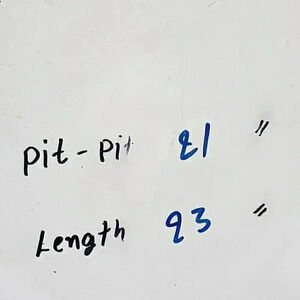 pit - pit 21 "
Length 23 "